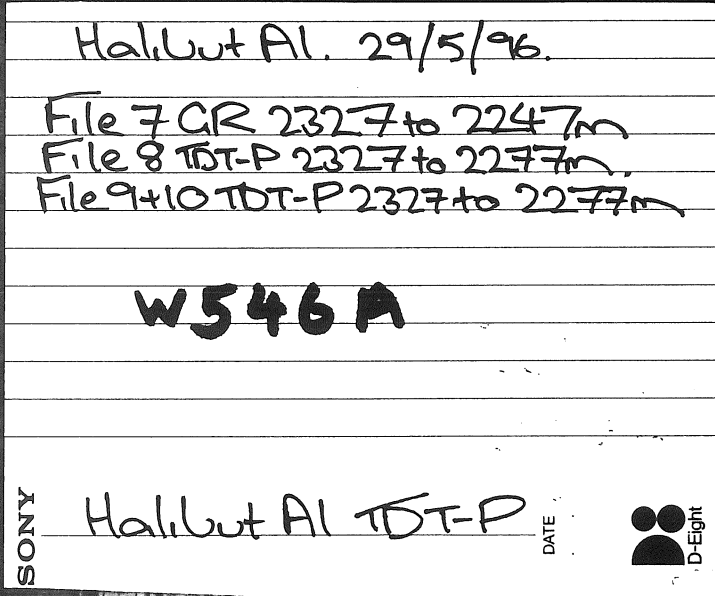 Halibut A1. 29/5/96.
File 7 GR 2327 to 2247m
File 8 TDT-P 2327 to 2277m.
File 9+10 TDT-P 2327 to 2277m
W546A
SONY
Halibut A1 TDT-P
DATE
D-Eight